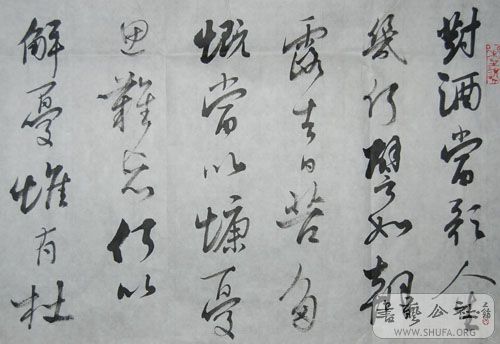 對酒當歌人生
幾何譬如朝
露去日苦多
慨當以慷憂
思難忘何以
解憂惟有杜
書藝公社
WWW.SHUFA.ORG